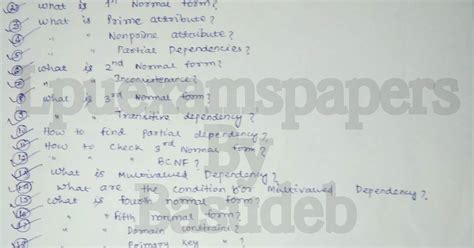 what is 1st Normal form?
what is Prime attribute?
" " Nonprime attribute?
" " Partial Dependencies?
what is 2nd Normal form?
" " Inconsistence?
what is 3rd Normal form?
" " Transitive dependency?
How to find partial dependency?
How to check 3rd Normal form?
" " " BCNF?
what is Multivalued Dependency?
what are the condition for Multivalued Dependency?
what is fourth normal form?
" " fifth normal form?
" " Domain constraint?
" " Primary key " ?
Lpuexamspapers
By
Basudeb